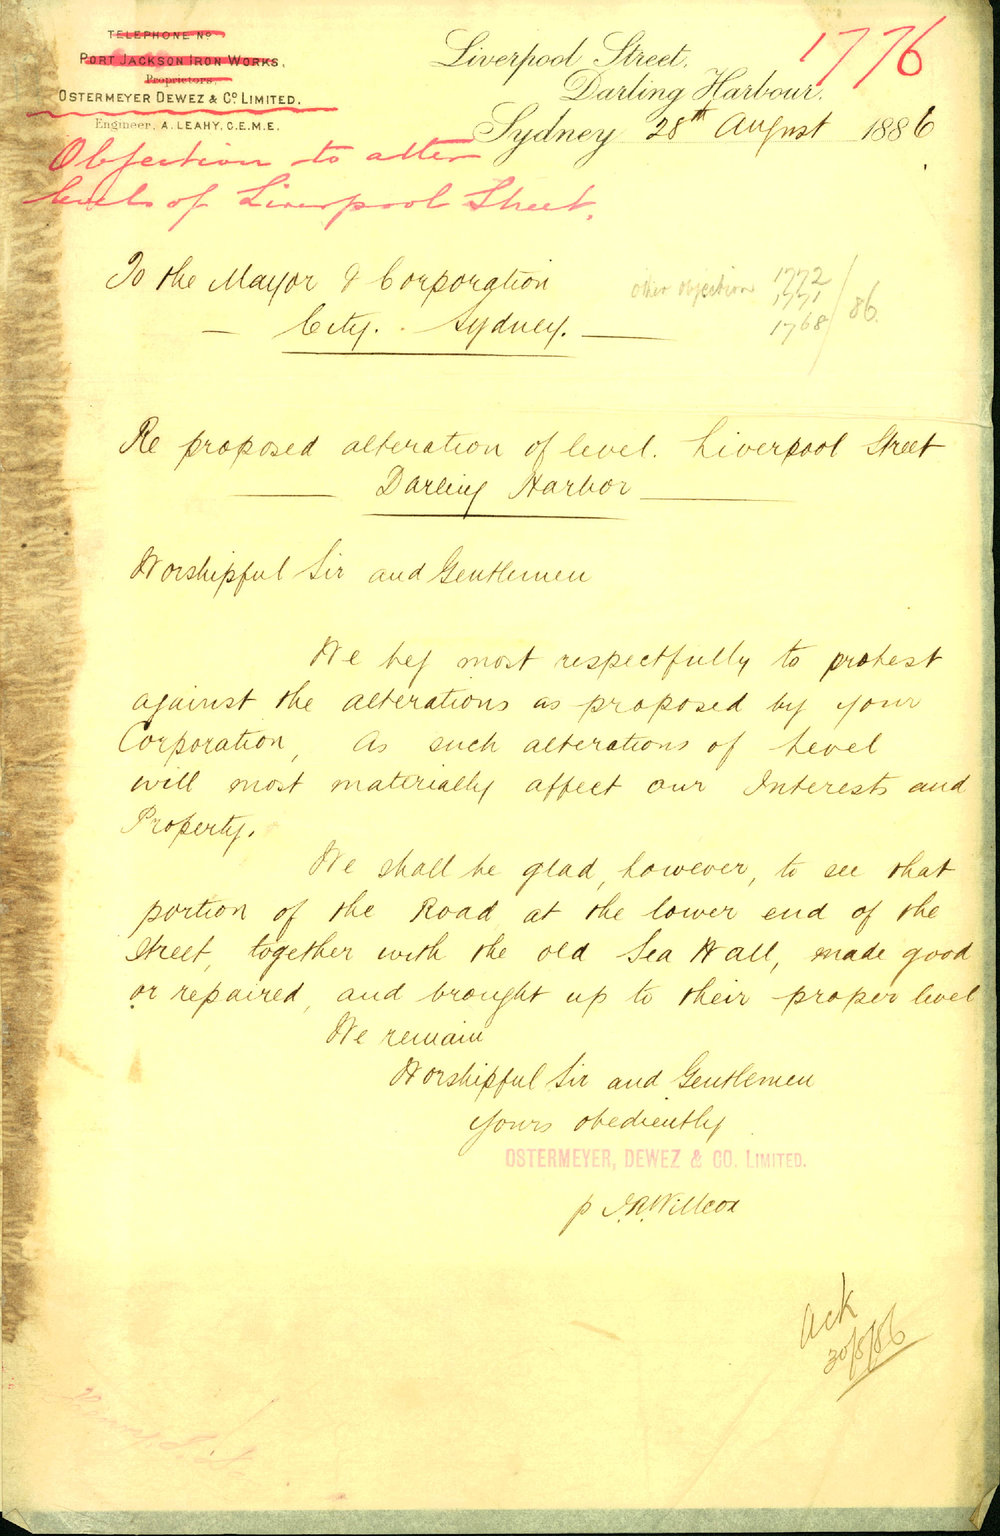 TELEPHONE No
PORT JACKSON IRON WORKS.
Proprietors,
OSTERMEYER DEWEZ & Co. LIMITED.
Engineer, A. LEAHY, C.E.M.E.
1776
Liverpool Street,
Darling Harbour,
Sydney 28th August 1886
Objection to alter
levels of Liverpool Street.
To the Mayor & Corporation
City. Sydney.
other objections 1772
1771
1768 / 86.
Re proposed alteration of level. Liverpool Street
Darling Harbor
Worshipful Sir and Gentlemen
We beg most respectfully to protest
against the alterations as proposed by your
Corporation, As such alterations of Level
will most materially affect our Interests and
Property.
We shall be glad, however, to see that
portion of the Road at the lower end of the
Street, together with the old Sea Wall, made good
or repaired, and brought up to their proper level
We remain
Worshipful Sir and Gentlemen
Yours obediently
OSTERMEYER, DEWEZ & CO. LIMITED.
p J.R. Willcox
Ack
30/8/86